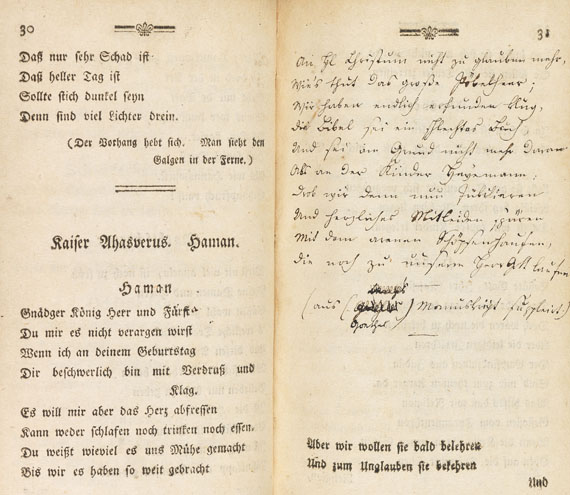 30
Daß nur sehr Schad ist
Daß heller Tag ist
Sollte stich dunkel seyn
Denn sind viel Lichter drein.
(Der Vorhang hebt sich. Man sieht den
Galgen in der Ferne.)
Kaiser Ahasverus. Haman.
Haman
Gnädger König Herr und Fürst
Du mir es nicht verargen wirst
Wenn ich an deinem Geburtstag
Dir beschwerlich bin mit Verdruß und
Klag.
Es will mir aber das Herz abfressen
Kann weder schlafen noch trinken noch essen.
Du weißt wieviel es uns Mühe gemacht
Bis wir es haben so weit gebracht
31
An Christum nicht zu glauben mehr,
Wie's thut das große Pöbelheer;
Wir haben endlich erfunden klug,
die Bibel sei ein schlechtes Buch
Und sei im Grund nicht mehr daran
Als an der Kinder Haymann;
Drob wir denn nun jubiliren
Und herzliches Mitleiden spüren
Mit dem armen Schöpsenhaufen,
die noch zu unserm Herr Gott laufen
(aus Manuscript suppliert)
Goethes
Aber wir wollen sie bald belehren
Und zum Unglauben sie bekehren
Und